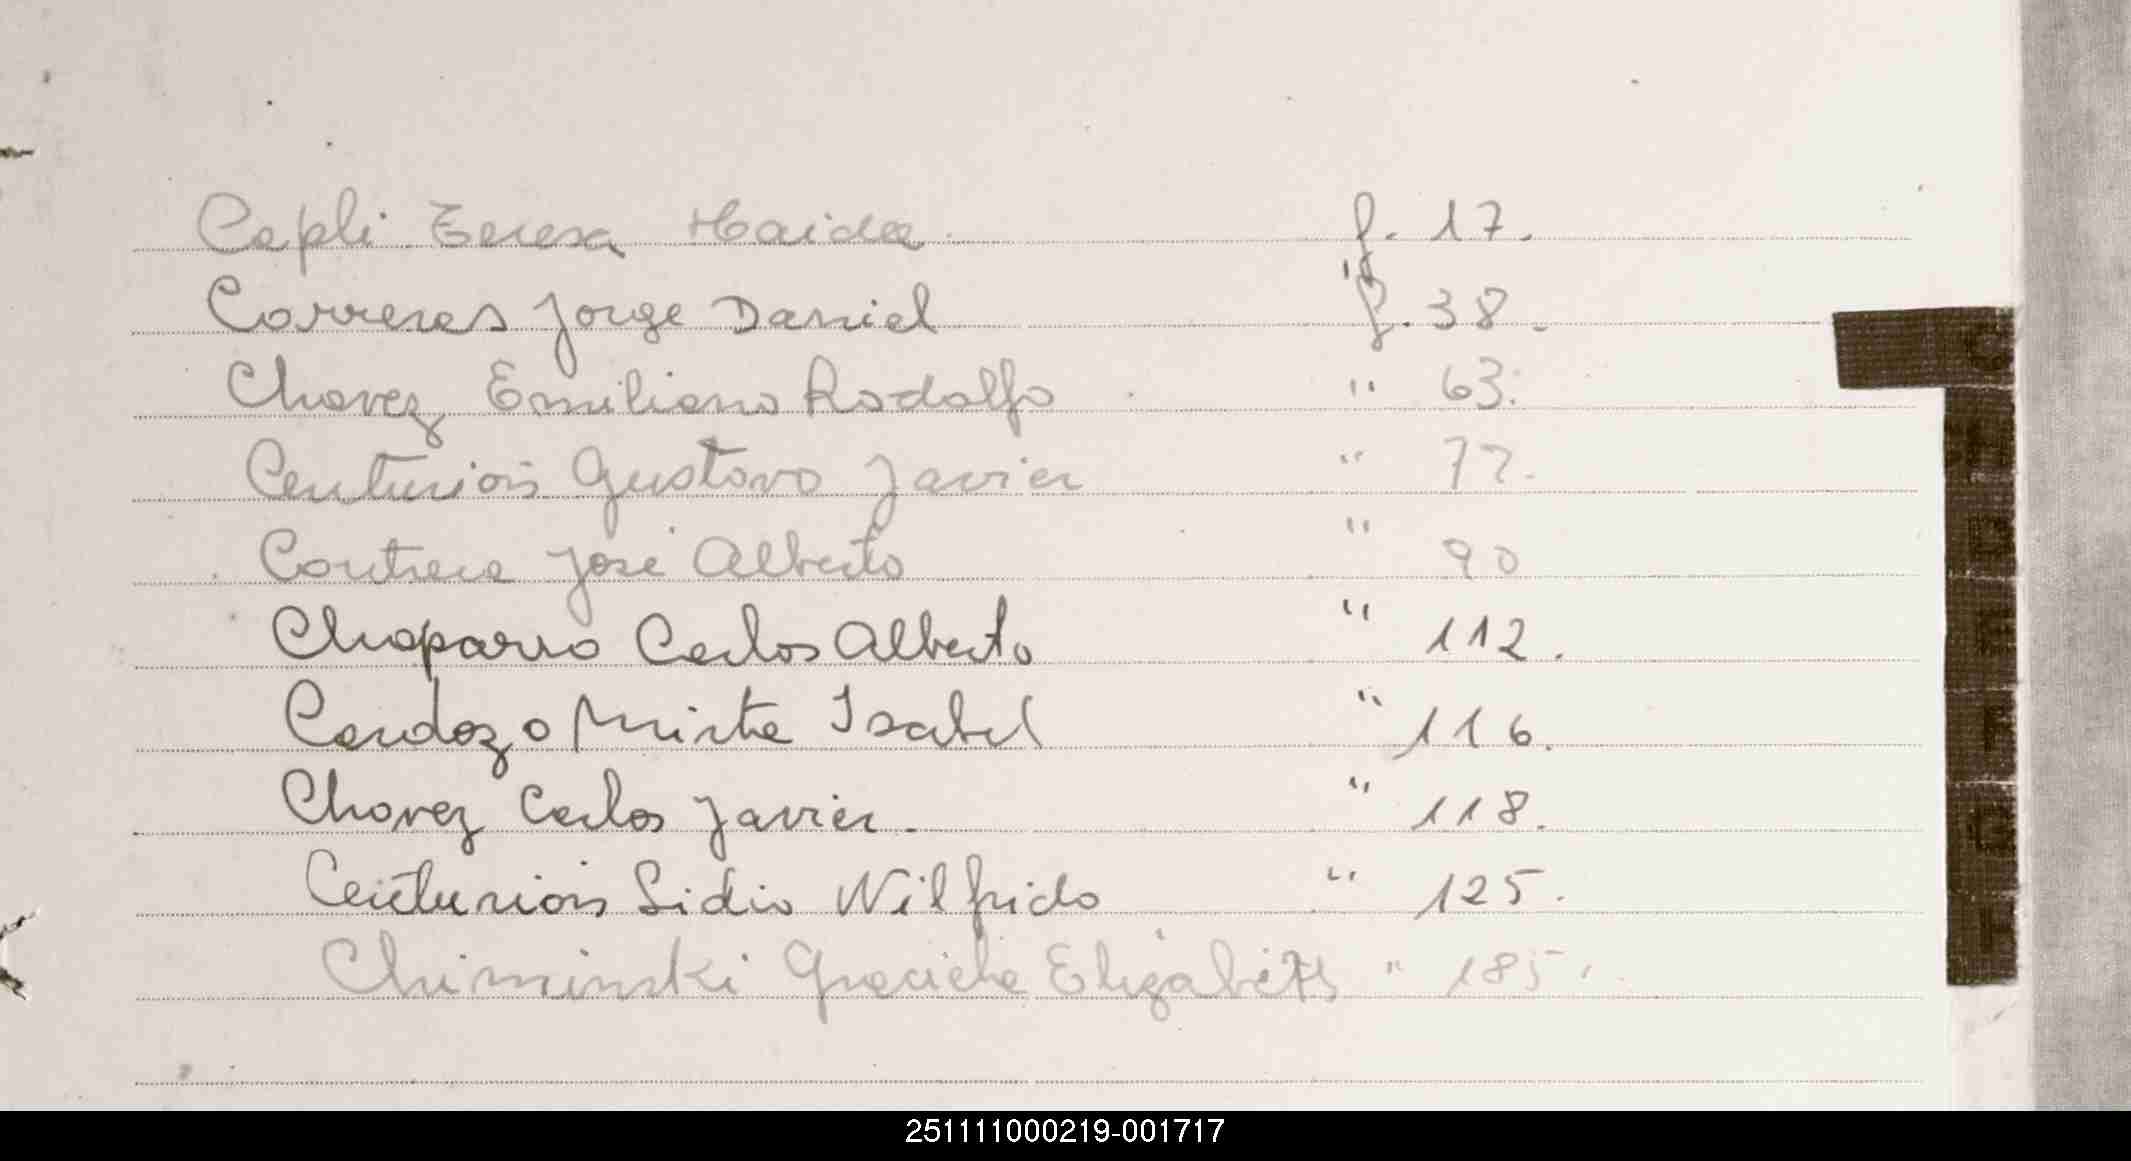 Capli Teresa Haidee f. 17.
Carreras Jorge Daniel " f. 38.
Chavez Emiliano Rodolfo " 63.
Centurión Gustavo Javier " 77.
Contrera José Alberto " 90
Chaparro Carlos Alberto " 112.
Cardozo Mirta Isabel " 116.
Chavez Carlos Javier. " 118.
Centurión Lidio Wilfrido " 125.
Chiminski Graciela Elizabeth " 185.
C
D
E
F
G
251111000219-001717